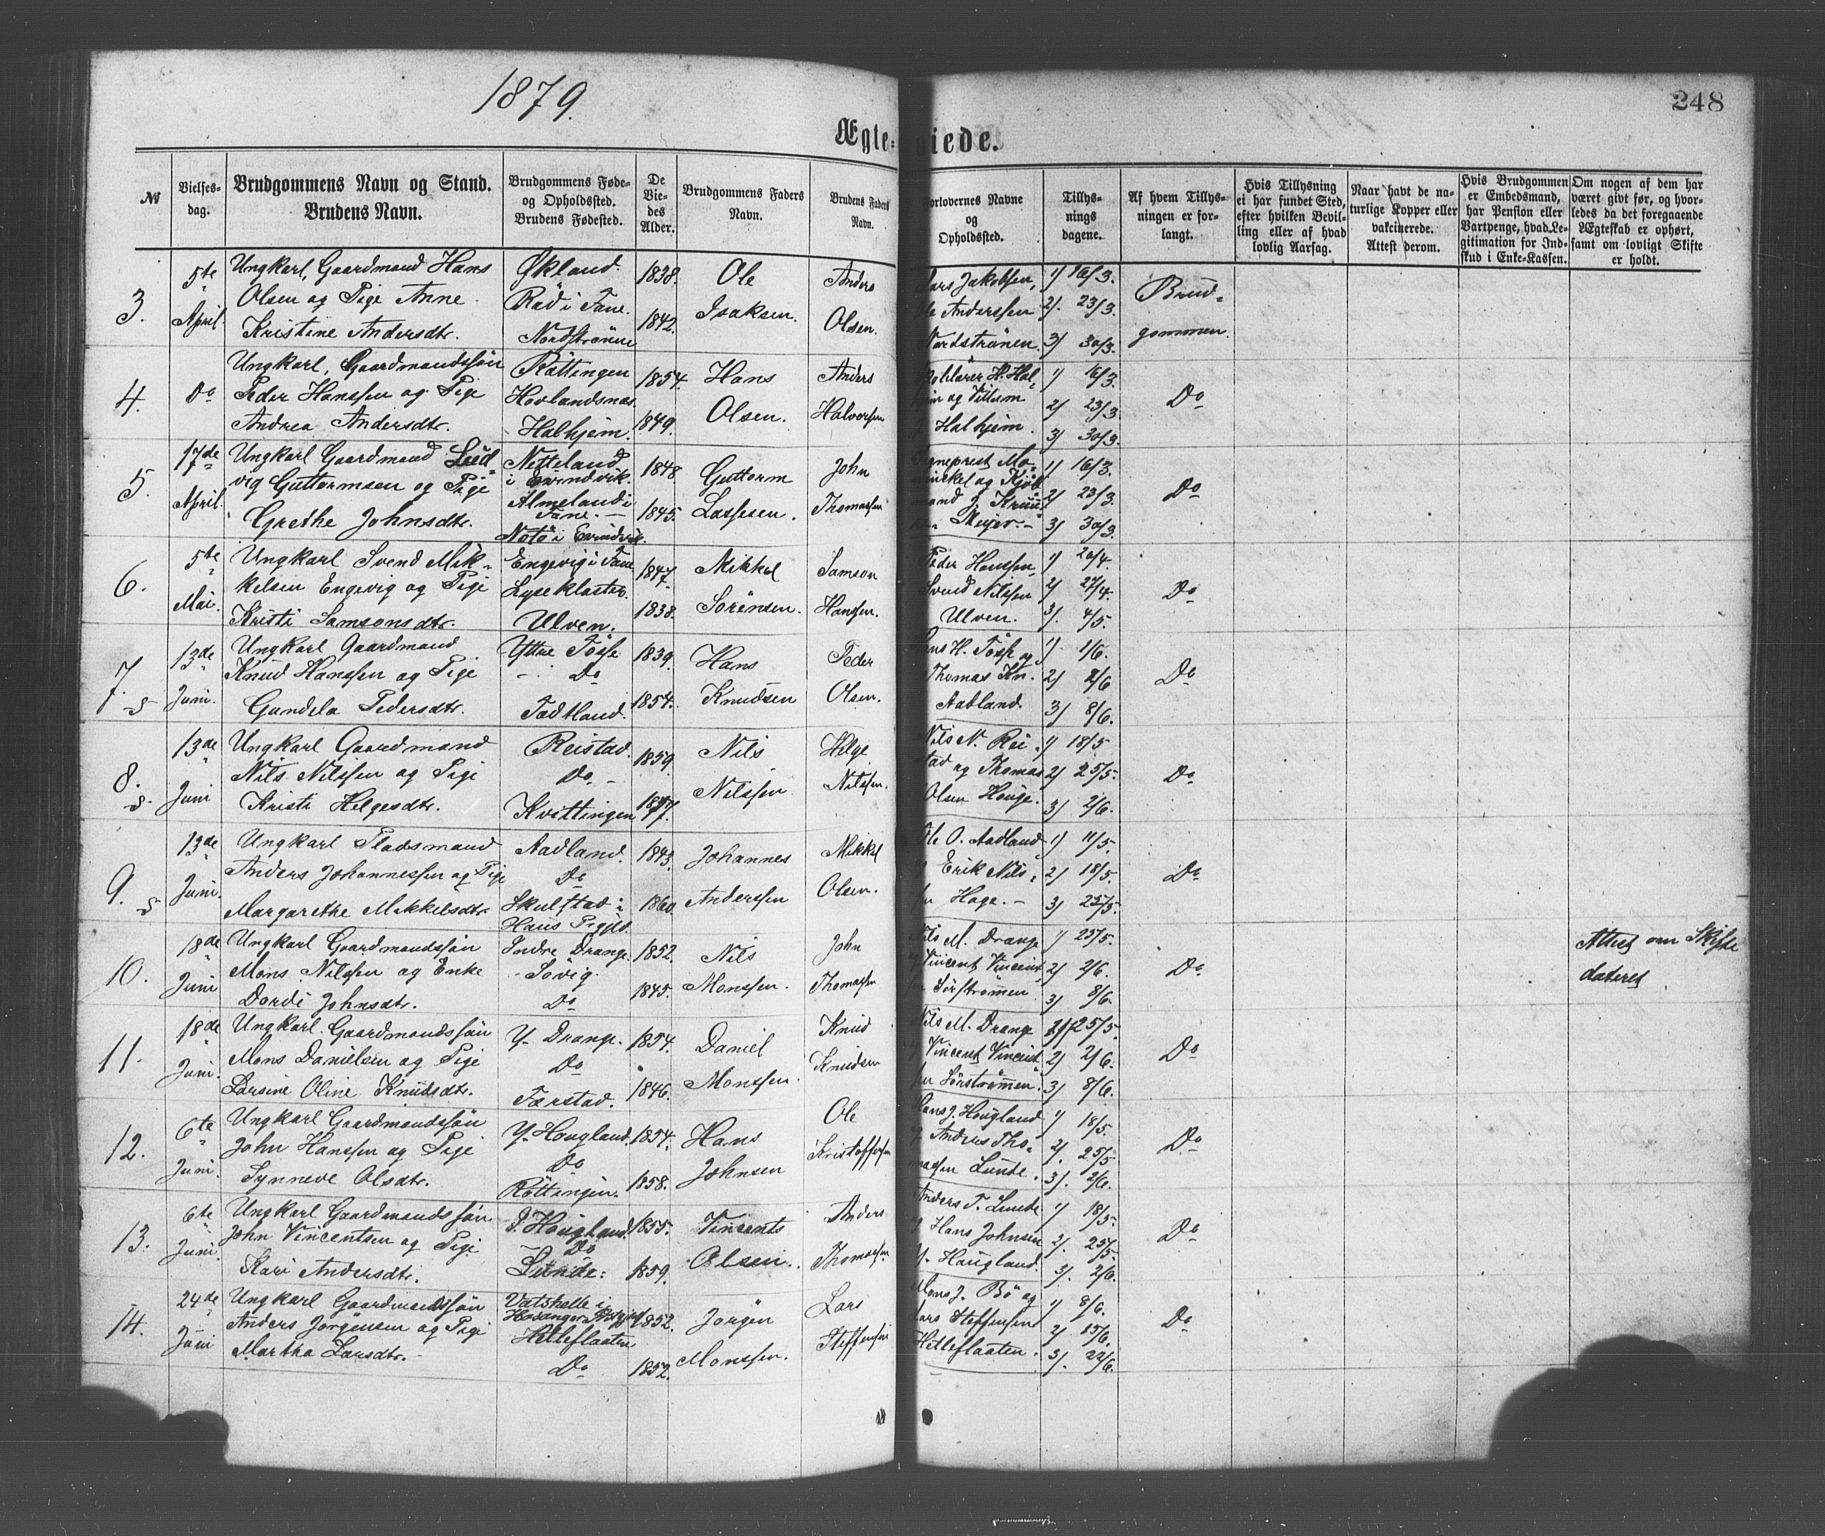 1879.
248
Ægteviede.
№
Vielses-
dag.
Brudgommens Navn og Stand.
Brudens Navn.
Brudgommens Føde-
og Opholdssted.
Brudens Fødested.
De
Vie-
des
Alder.
Brudgommens Faders
Navn.
Brudens Faders
Navn.
Forlovernes Navne
og
Opholdssted.
Tillys-
nings
dagene.
Af hvem Tillys-
ningen er for-
langt.
Hvis Tillysning
ei har fundet Sted,
efter hvilken Bevil-
ling eller af hvad
lovlig Aarsag.
Naar havt de na-
turlige Kopper eller
vakcinerede.
Attest derom.
Hvis Brudgommen
er Embedsmand,
har Pension eller
Vartpenge, hvad Le-
gitimation for Ind-
skud i Enke-Kassen.
Om nogen af dem har
været givt før, og hvor-
ledes da det foregaaende
Ægteskab er ophørt,
samt om lovligt Skifte
er holdt.
3.
5te April.
Ungkarl, Gaardmand Hans
Olsen og Pige Anne
Kristine Andersdtr.
Økland
Rød i Fane.
Nordstrønne
1838.
1842.
Ole
Isaksen.
Anders
Olsen.
Lars Jakobsen,
Ole Anderssen
Nordstrønen.
1) 16/3.
2). 23/3.
3) 30/3.
Brud-
gommen.
4.
Do
Ungkarl, Gaardmandssøn
Peder Hanssen og Pige
Andrea Andersdtr.
Røttingen
Hovlandsnæs
Halhjem.
1854.
1849.
Hans
Olsen.
Anders
Halvorsen
og Villum
Halhjem.
1) 16/3.
2) 23/3.
3) 30/3.
Do
5.
17de April.
Ungkarl Gaardmand Lud-
vig Guttormsen og Pige
Grethe Johnsdtr.
Netteland
i Evindvik
Almeland i
Fane. -
Notø i Evindvik.
1848.
1845.
Guttorm
Lassesen.
John
Thomassen
Meyer -
1) 16/3.
2) 23/3.
3) 30/3.
Do
6.
5te Mai.
Ungkarl Svend Mik-
kelsen Engevig og Pige
Kristi Samsonsdtr.
Engevig i Fane
Lyseklostret.
Ulven.
1847.
1838.
Mikkel
Sørensen.
Samson
Hanssen.
Peder Hanssen,
Svend Nilssen
Ulven.
1) 20/4.
2) 27/4.
3). 4/5.
Do
7.
S
13de Juni.
Ungkarl Gaardmand
Knud Hanssen og Pige
Gundela Pedersdtr.
Yttre Tøsse
Do
Tødtland.
1839.
1854.
Hans
Knudsen
Peder
Olsen.
H. Tøsse og
Thomas Kn.
Aadland.
1). 1/6.
2) 2/6
3) 8/6.
Do
8.
S.
13de Juni
Ungkarl Gaardmand
Nils Nilssen og Pige
Kristi Helgesdtr.
Reistad.
Do -
Kvittingen
1859.
1847.
Nils
Nilssen
Helge
Nilssen.
Nils N. Rei-
stad og Thomas
Olsen Houge.
1) 18/5
2) 25/5.
3) 2/6.
Do
9.
S
13de Juni.
Ungkarl Pladsmand
Anders Johannessen og Pige
Margarethe Mikkelsdtr.
Aadland.
Do
Skulstad i
Haus Prgjld.
1843.
1860.
Johannes
Anderssen
Mikkel
Olsen.
Ole O. Aadland
Erik Nils-
Hage. -
1) 11/5.
2) 18/5.
3) 25/5.
Do
10.
18de Juni
Ungkarl Gaardmandssøn
Mons Nilssen og Enke
Dordi Johnsdtr.
Indre Drange
- Søvig.
Do
1852.
1845.
Nils
Monssen.
John
Thomassen
Nils M. Drange
Vincent Vincent
Sørstrømen
1) 25/5.
2) 2/6.
3) 8/6.
Do
Attest om Skifte
dateret
11.
18de Juni.
Ungkarl Gaardmandssøn
Mons Danielsen og Pige
Larsine Oline Knudsdtr.
Y. Drange.
Do
Færstad.
1854.
1846.
Daniel
Monssen.
Knud
Knudsen
Nils M. Drange
Vincent Vincent
Sørstrømen.
1) 25/5.
2) 2/6.
3) 8/6.
Do
12.
6te Juni.
Ungkarl Gaardmandssøn
John Hanssen og Pige
Synneve Olsdtr.
Y. Hougland.
Do
Røttingen.
1854.
1858.
Hans
Johnsen
Ole
Kristoffersen
Hans J. Hougland
Anders Tho-
massen Lunde.
1) 18/5.
2). 25/5.
3). 2/6.
Do
13.
6te Juni.
Ungkarl Gaardmandssøn
John Vincentsen og Pige
Kari Andersdtr.
Hougland.
Do
Lunde.
1855.
1859.
Vincents
Olsen.
Anders
Thomassen
Anders T. Lunde
Hans Johnsen
Y. Haugland.
1) 18/5.
2). 25/5.
3). 2/6.
Do
14.
24de Juni
Ungkarl Gaardmandssøn
Anders Jørgensen og Pige
Martha Larsdtr. -
Vatshelle i
Hosanger Prstgjeld
Helleflaaten
Do
1852.
1852.
Jørgen
Monssen.
Lars
Steffensen
Mons J. Bø og
Lars Steffensen
Helleflaaten.
1) 8/6.
2) 15/6.
3). 22/6.
Do